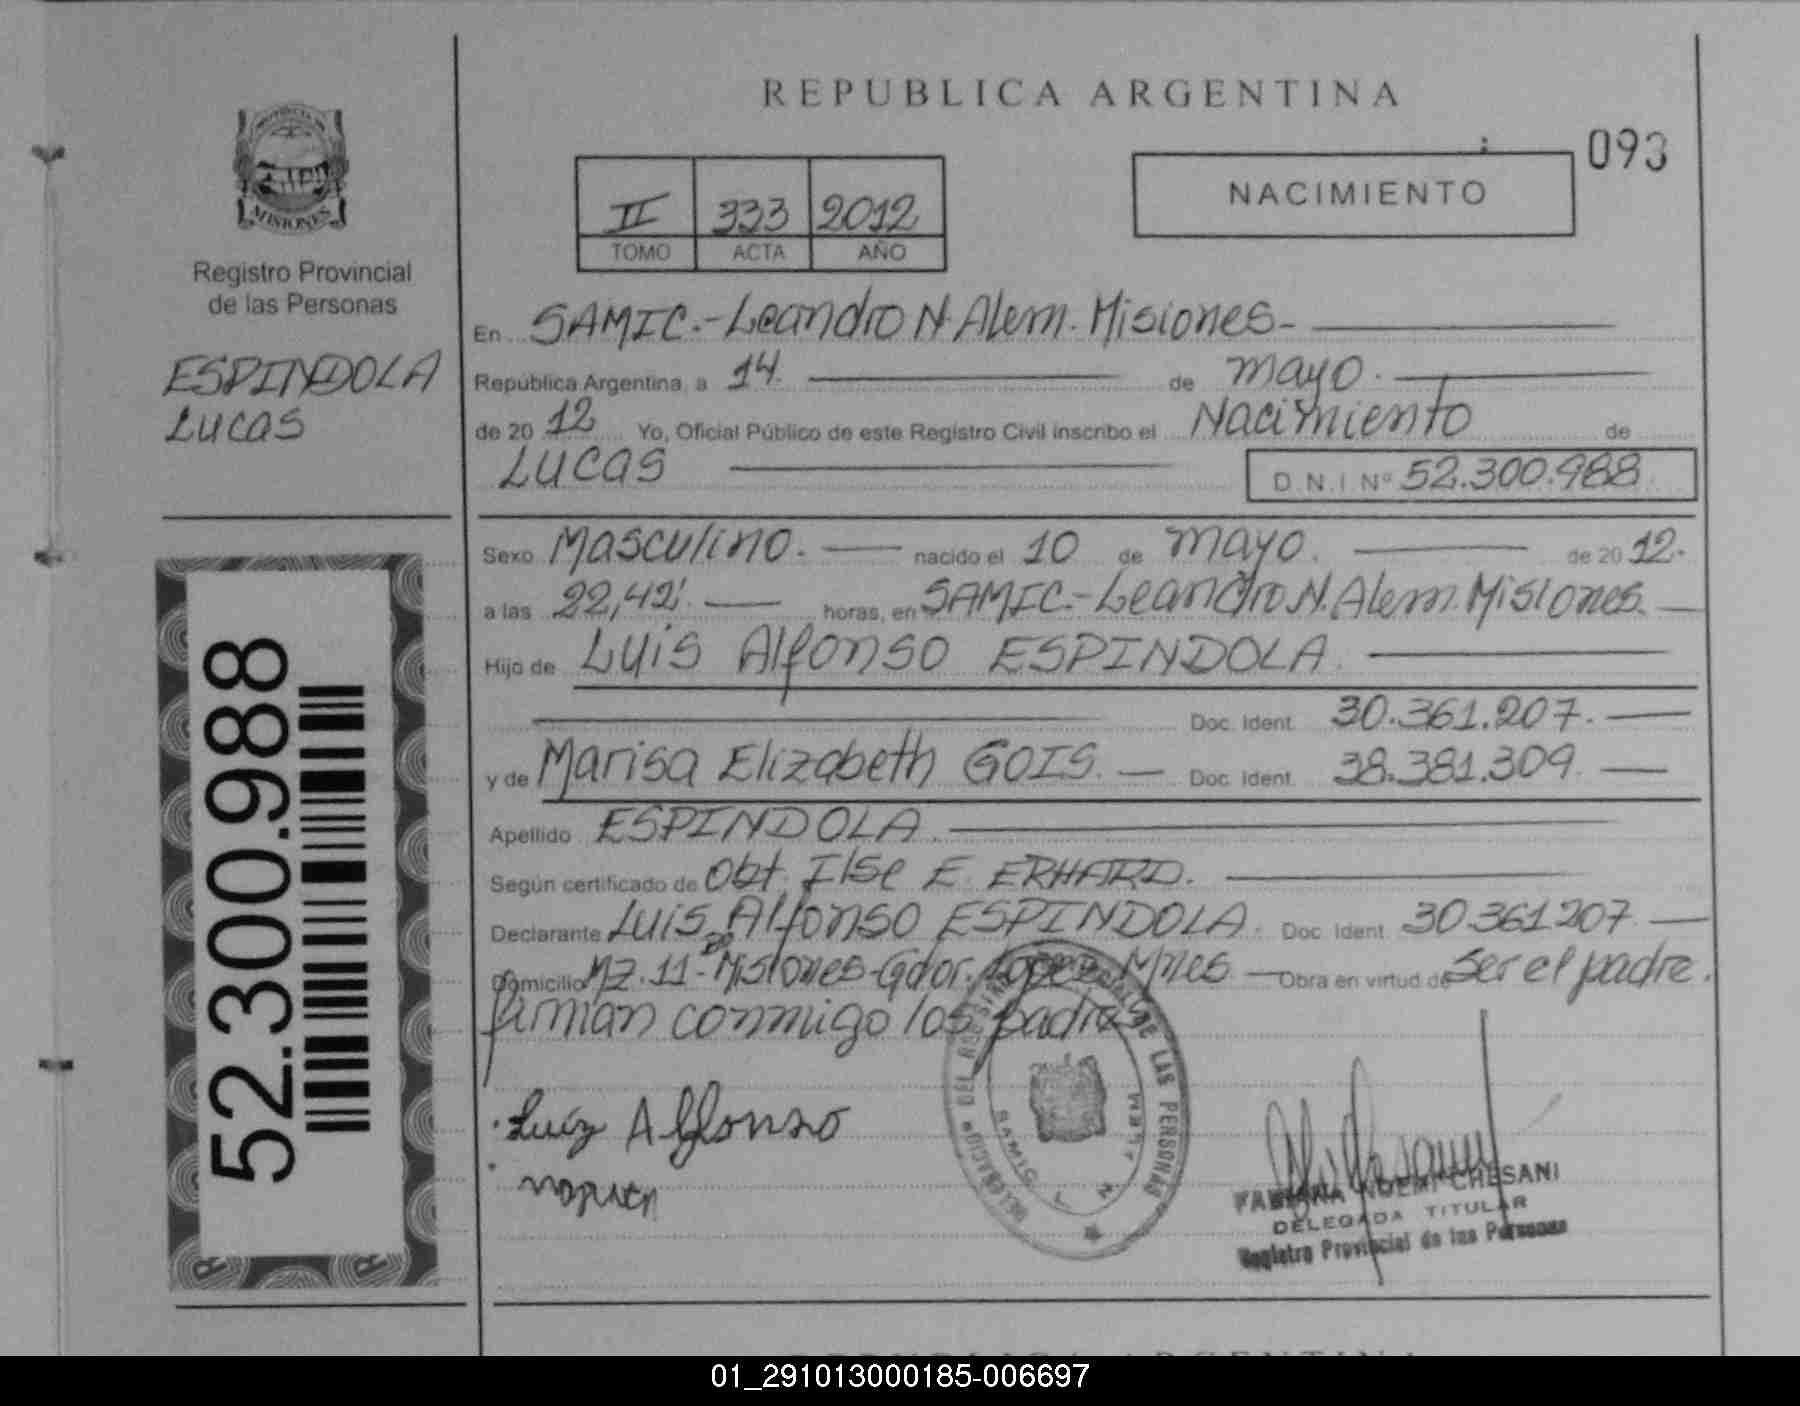 REPUBLICA ARGENTINA
093
NACIMIENTO
II 333 2012
TOMO ACTA AÑO
MISIONES
Registro Provincial
de las Personas
ESPINDOLA
LUCAS
52.300.988
En SAMIC.-Leandro N. Alem. Misiones-
República Argentina, a 14 de mayo.
de 20 12 Yo, Oficial Público de este Registro Civil inscribo el Nacimiento de
LUCAS D.N.I. Nº 52.300.988
Sexo Masculino. nacido el 10 de mayo. de 20 12.
a las 22,42'. horas, en SAMIC.-Leandro N. Alem. Misiones.
Hijo de Luis Alfonso ESPINDOLA.
Doc. Ident. 30.361.207.
y de Marisa Elizabeth GOIS. Doc. Ident. 38.381.309.
Apellido ESPINDOLA.
Según certificado de Obt. Ilse E. ERHARD.
Declarante Luis Alfonso ESPINDOLA. Doc. Ident. 30.361.207.
Domicilio Mz. 11-Misiones-Gdor. Lopez Mnes. Obra en virtud de Ser el padre.
firman conmigo los padres
Luiz Alfonso
DE LAS PERSONAS
SAMIC
FABIANA NOEMI CHESANI
DELEGADA TITULAR
Registro Provincial de las Personas
REPUBLICA ARGENTINA
01_291013000185-006697